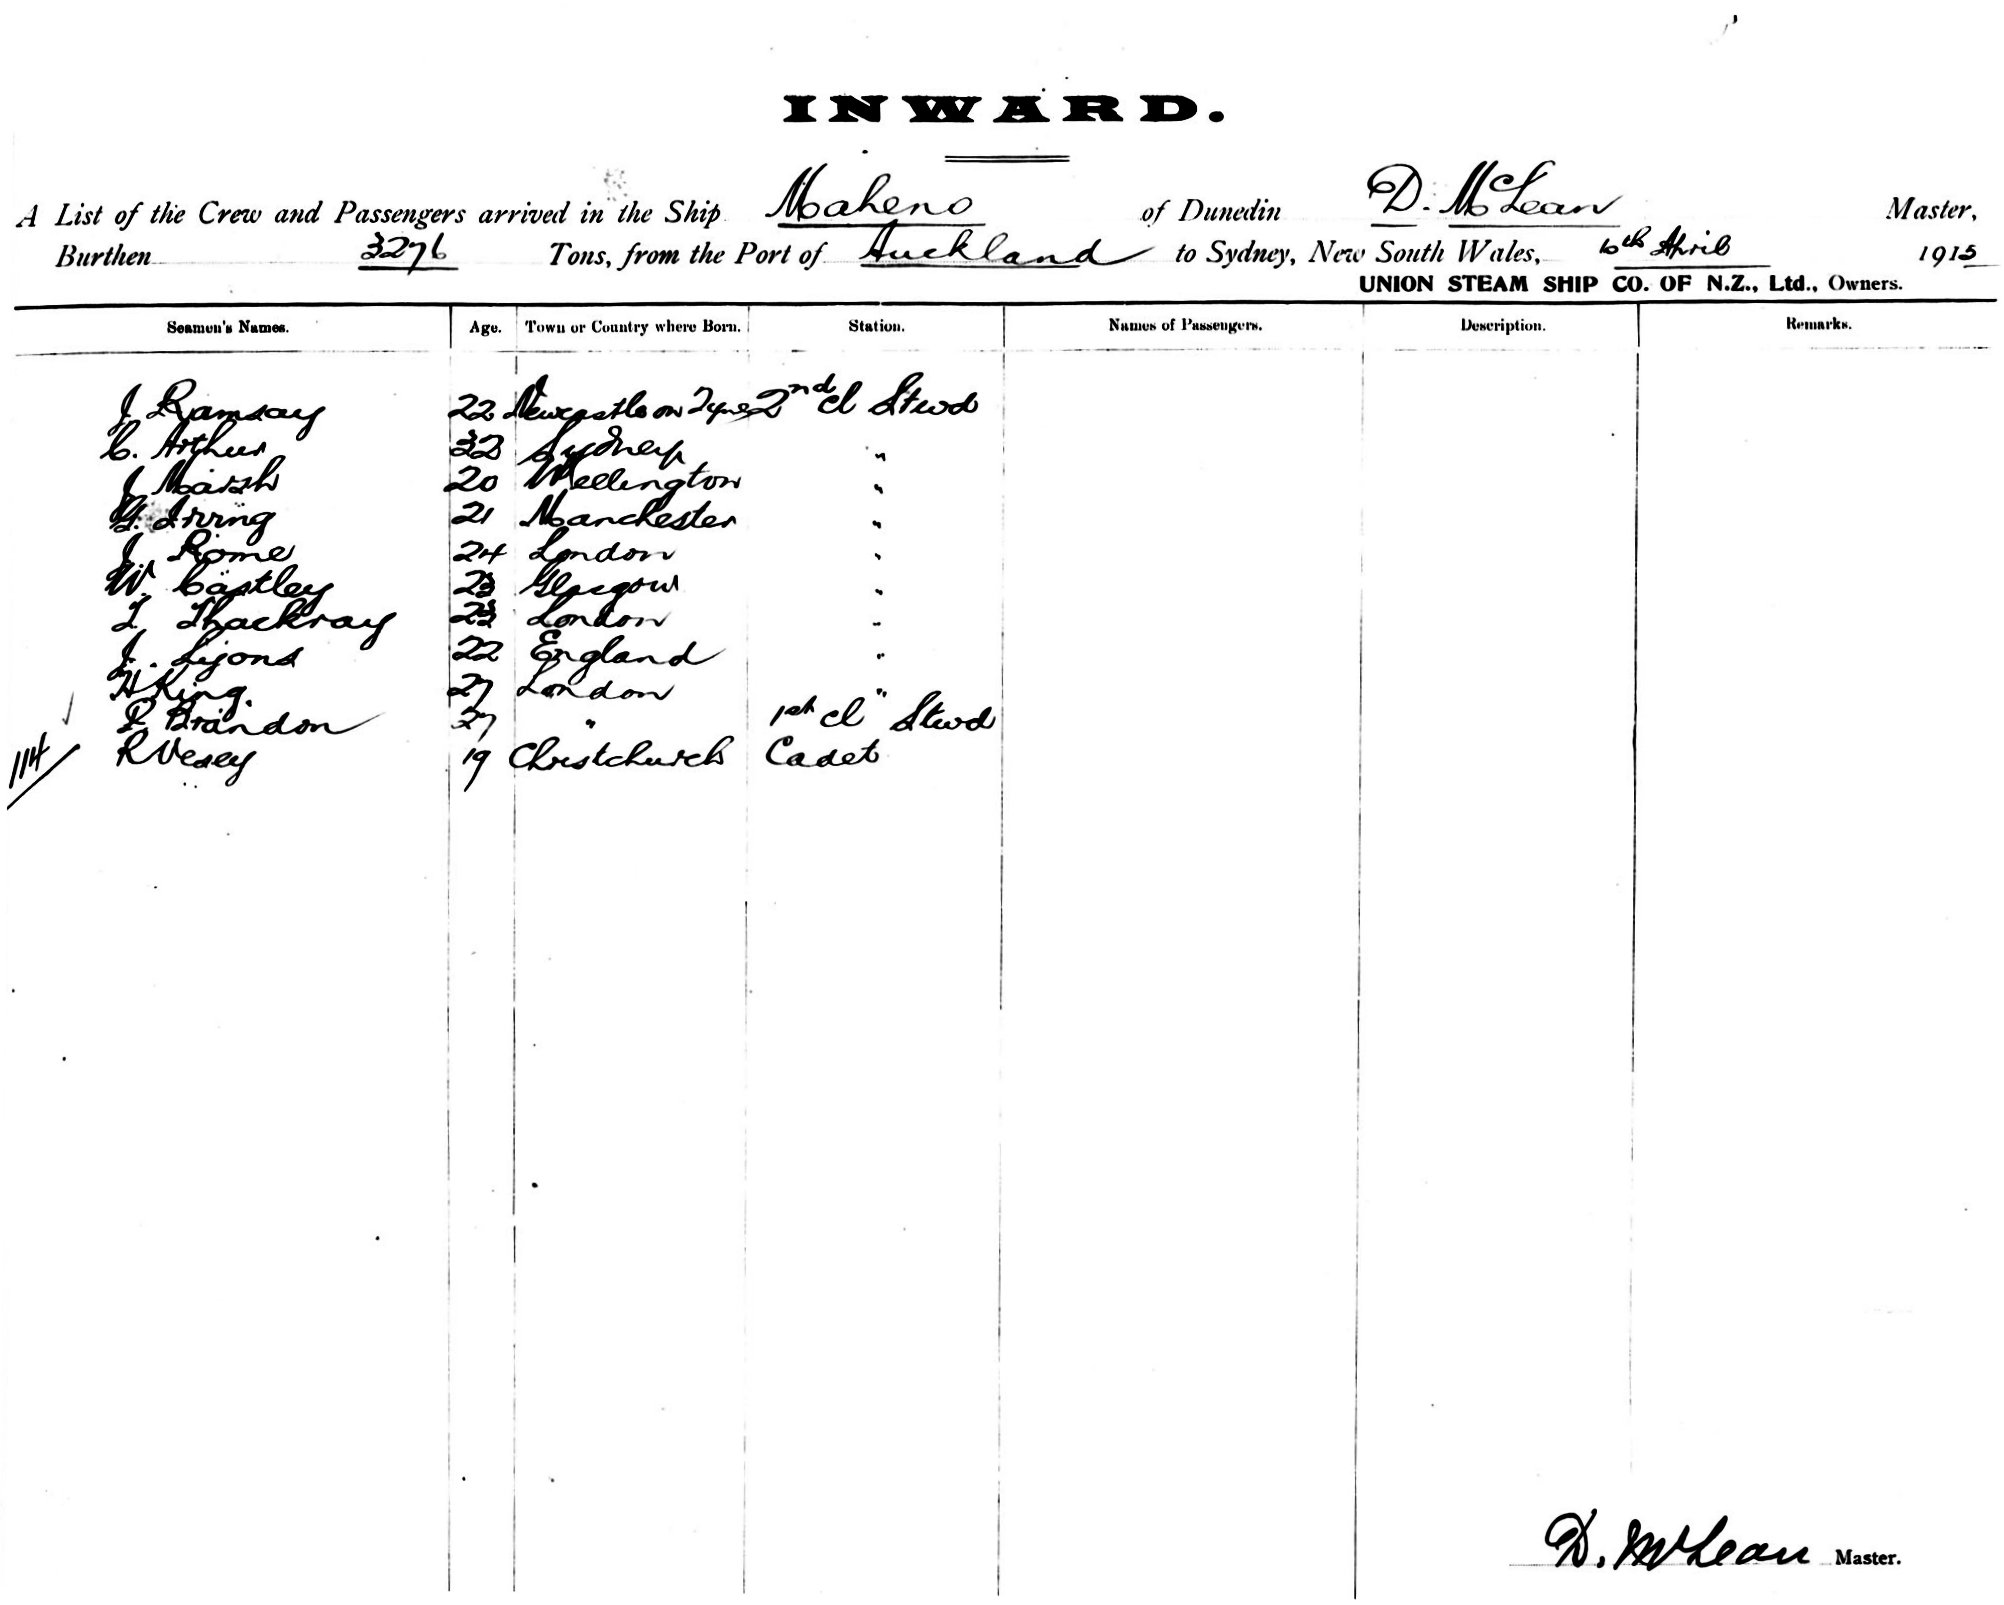 INWARD.
A List of the Crew and Passengers arrived in the Ship Maheno of Dunedin D. McLean Master,
Burthen 3276 Tons, from the Port of Auckland to Sydney, New South Wales, 6th April 1915
UNION STEAM SHIP CO. OF N.Z., Ltd., Owners.
Seamen's Names. Age. Town or Country where Born. Station. Names of Passengers. Description. Remarks.
J Ramsay 22 Newcastle on Tyne 2nd Cl Stwd
C. Arthur 32 Sydney "
J Marsh 20 Wellington "
G. Irving 21 Manchester "
J Rome 24 London "
W. Castley 23 Glasgow "
T Thackray London "
J. Lyons 22 England "
H King. 27 London "
P Brandon 27 " 1st Cl Stwd
114 R Vesey 19 Christchurch Cadet
D. McLean Master.